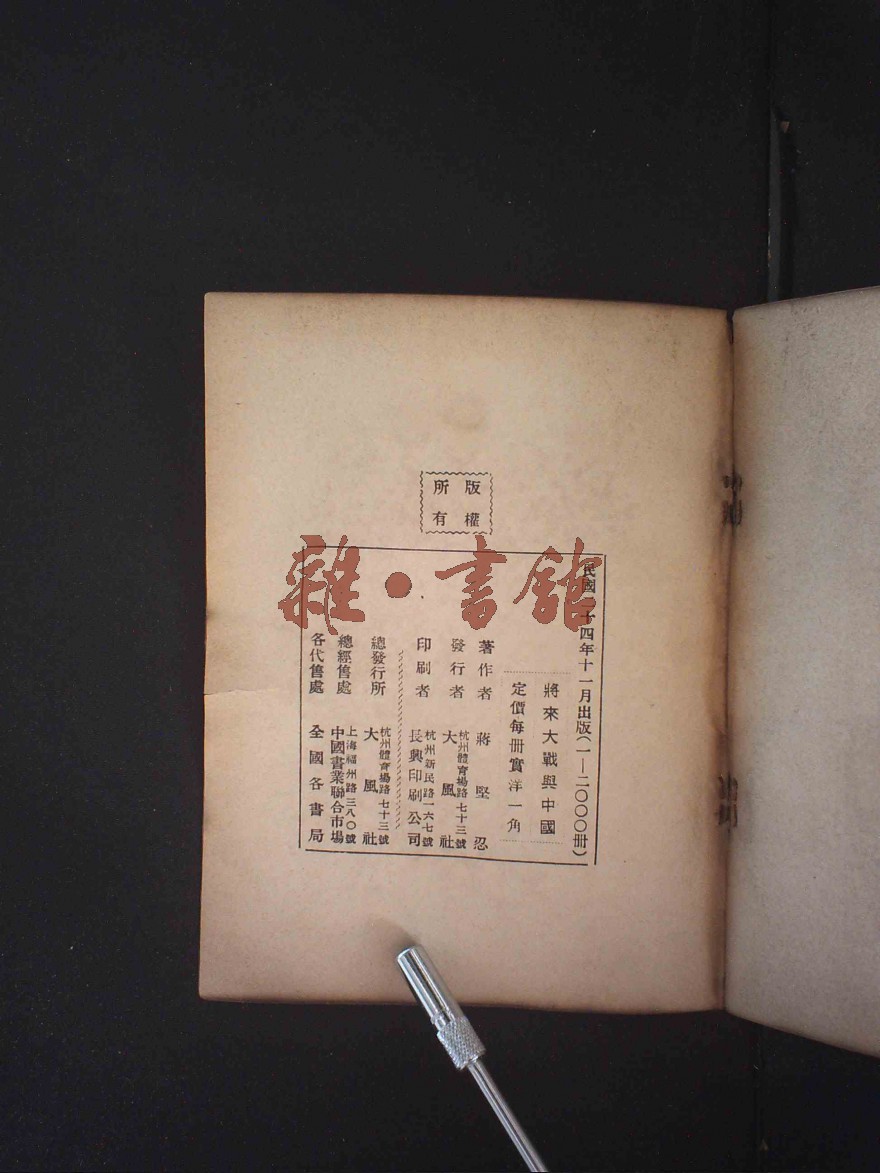 版權
所有
民國二十四年十一月出版(一—二〇〇〇冊)
將來大戰與中國
定價每冊實洋一角
著作者 蔣堅忍
發行者 杭州體育場路七十三號
大風社
印刷者 杭州新民路一六七號
長興印刷公司
總發行所 杭州體育場路七十三號
大風社
總經售處 上海福州路三八〇號
中國書業聯合市場
各代售處 全國各書局
雜·書館